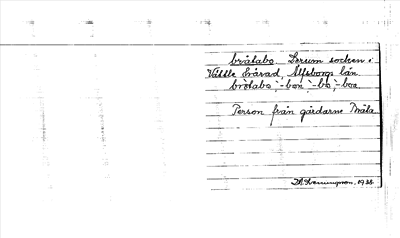 bråtabo. Lerum socken i
Vättle härad, Älfsborgs län.
bròtabo, -bon, -bo, -boa
Person från gårdarne Bråta
1938